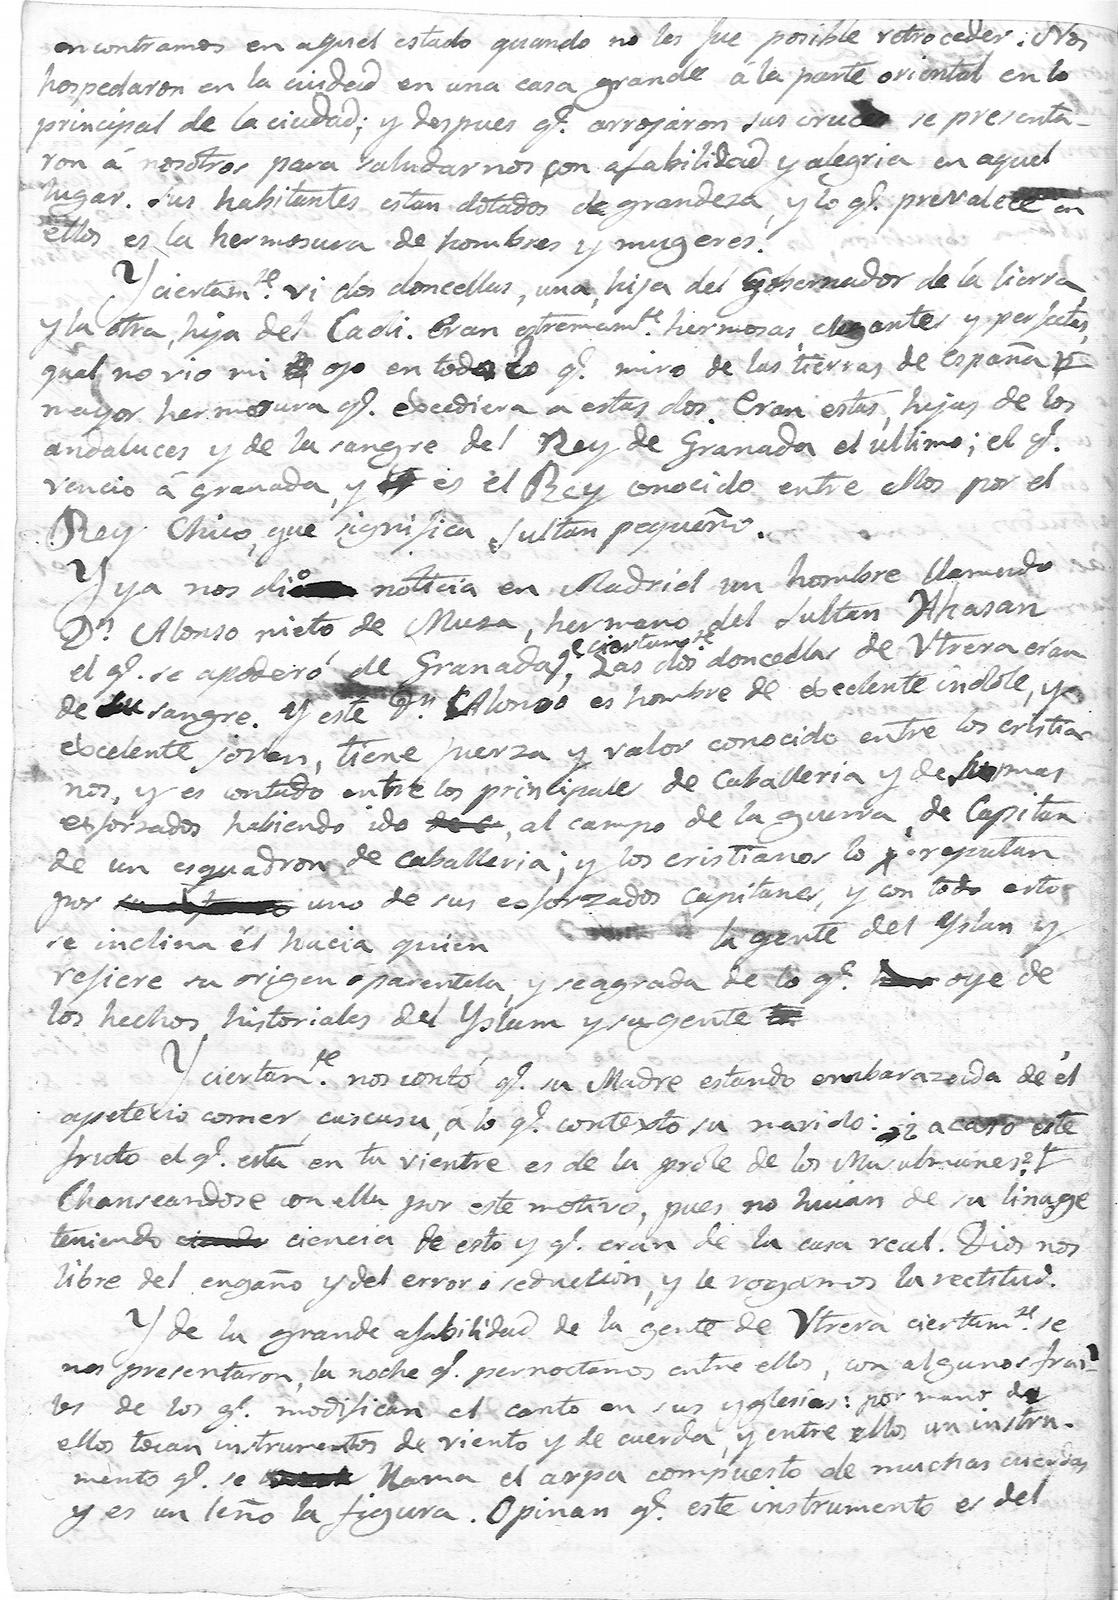 encontramos en aquel estado quando no les fue posible retroceder. Nos
hospedaron en la ciudad en una casa grande á la parte oriental en lo
principal de la ciudad; y despues q.e arrojaron sus cruces se presenta-
ron á nosotros para saludarnos con afabilidad y alegria en aquel
lugar. Sus habitantes estan dotados de grandeza, y lo q.e prevalece en
ellos es la hermosura de hombres y mugeres.
Y ciertam.te vi dos doncellas, una, hija del Gobernador de la tierra,
y la otra, hija del Cadi. Eran estremam.te hermosas, elegantes y perfectas,
qual no vio mi ojo en todo lo q.e miro de las tierras de españa
mayor hermosura q.e excediera a estas dos. Eran estas, hijas de los
andaluces y de la sangre del Rey de Granada el ultimo; el q.e
vencio á granada, y es el Rey conocido entre ellos por el
Rey Chico, que significa Sultan pequeño.
Y ya nos dio noticia en Madrid un hombre llamado
D.n Alonso nieto de Musa, hermano del Sultan Ahasan
el q.e se apoderó de Granada, q.e ciertam.te Las dos doncellas de Vtrera eran
de su sangre. Y este D.n Alonso es hombre de excelente indole, y
excelente joven, tiene fuerza y valor conocido entre los cristia-
nos, y es contado entre los principales de caballeria y de los mas
esforzados habiendo ido al campo de la guerra, de Capitan
de un esquadron de caballeria; y los cristianos lo reputan
por uno de sus esforzados capitanes, y con todo esto
se inclina él hacia quien la gente del Yslan y
refiere su origen o parentela, y se agrada de lo q.e oye de
los hechos historiales del Yslam y su gente
Y ciertam.te nos contó q.e su Madre estando embarazada de él
apetecio comer cuscusu, á lo q.e contexto su marido: ¿acaso este
fruto el q.e está en tu vientre es de la próle de los Musulmanes?
Chanseandose con ella por este motivo, pues no huian de su linage
teniendo ciencia de esto y q.e eran de la casa real. Dios nos
libre del engaño y del error o seduccion, y le rogamos la rectitud.
Y de la grande afabilidad de la gente de Vtrera ciertam.te se
nos presentaron, la noche q.e pernoctamos entre ellos, con algunos frai-
les de los q.e modifican el canto en sus yglesias: por mano de
ellos tocan instrumentos de viento y de cuerda, y entre ellos un instru-
mento q.e se llama el arpa compuesto de muchas cuerdas
y es un leño la figura. Opinan q.e este instrumento es del